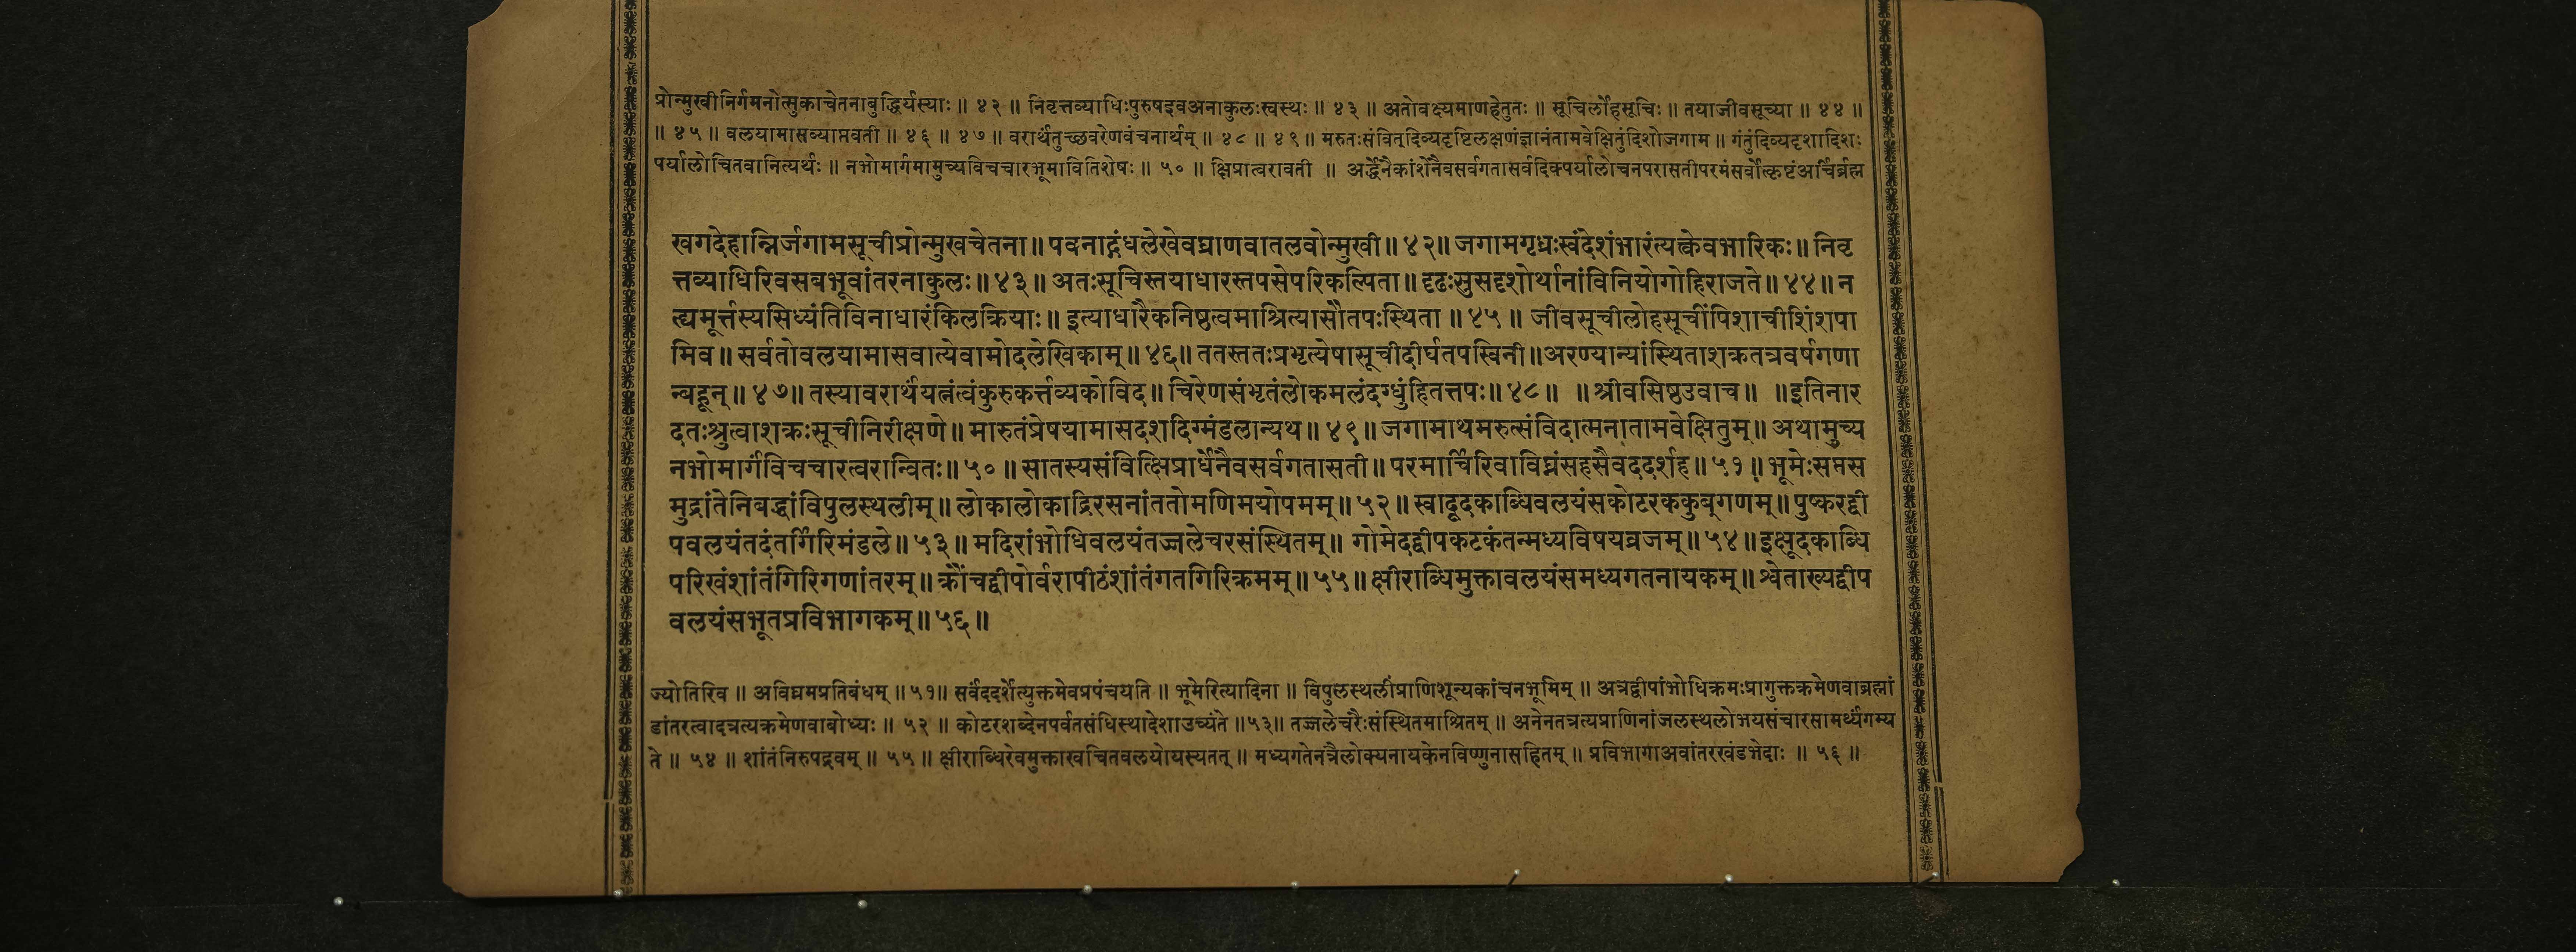 प्रोन्मुखीनिर्गमनोत्सुकाचेतनाबुद्धिर्यस्याः ॥ ४२ ॥ निवृत्तव्याधिःपुरुषइवअनाकुलःस्वस्थः ॥ ४३ ॥ अतोवक्ष्यमाणहेतुतः ॥ सूचिर्लोहसूचिः ॥ तयाजीवसूच्या ॥ ४४ ॥
॥ ४५ ॥ वलयामासव्याप्तवती ॥ ४६ ॥ ४७ ॥ वरार्थंतुच्छवरेणवंचनार्थम् ॥ ४८ ॥ ४९ ॥ मरुतःसंवित्दिव्यदृष्टिलक्षणंज्ञानंतामवेक्षितुंदिशोजगाम ॥ गंतुंदिव्यदृशादिशः
पर्यालोचितवानित्यर्थः ॥ नभोमार्गमामुच्यविचचारभूमावितिशेषः ॥ ५० ॥ क्षिप्रात्वरावती ॥ अर्द्धेनैकांशेनैवसर्वगतासर्वदिक्पर्यालोचनपरासतीपरमंसर्वोत्कृष्टंअर्चिर्ब्रह्म
खगदेहान्निर्जगामसूचीप्रोन्मुखचेतना ॥ पवनाद्गंधलेखेवघ्राणवातलवोन्मुखी ॥ ४२ ॥ जगामगृध्रःस्वंदेशंभारंत्यक्त्वेवभारिकः ॥ निवृ
त्तव्याधिरिवसबभूवांतरनाकुलः ॥ ४३ ॥ अतःसूचिस्तयाधारस्तपसेपरिकल्पिता ॥ दृढःसुसदृशोर्थानांविनियोगोहिराजते ॥ ४४ ॥ न
ह्यमूर्त्तस्यसिध्यंतिविनाधारंकिलक्रियाः ॥ इत्याधारैकनिष्ठत्वमाश्रित्यासौतपःस्थिता ॥ ४५ ॥ जीवसूचीलोहसूचींपिशाचीशिंशपा
मिव ॥ सर्वतोवलयामासवात्येवामोदलेखिकाम् ॥ ४६ ॥ ततस्ततःप्रभृत्येषासूचीदीर्घतपस्विनी ॥ अरण्यान्यांस्थिताशक्रतत्रवर्षगणा
न्बहून् ॥ ४७ ॥ तस्यावरार्थंयत्नंत्वंकुरुकर्त्तव्यकोविद ॥ चिरेणसंभृतंलोकमलंदग्धुंहितत्तपः ॥ ४८ ॥ ॥ श्रीवसिष्ठउवाच ॥ ॥ इतिनार
दतःश्रुत्वाशक्रःसूचीनिरीक्षणे ॥ मारुतंप्रेषयामासदशदिग्मंडलान्यथ ॥ ४९ ॥ जगामाथमरुत्संविदात्मनातामवेक्षितुम् ॥ अथामुच्य
नभोमार्गंविचचारत्वरान्वितः ॥ ५० ॥ सातस्यसंवित्क्षिप्रार्धेनैवसर्वगतासती ॥ परमार्चिरिवाविघ्नंसहसैवददर्शह ॥ ५१ ॥ भूमेःसप्तस
मुद्रांतेनिबद्धांविपुलस्थलीम् ॥ लोकालोकाद्रिरसनांततोमणिमयोपमम् ॥ ५२ ॥ स्वादूदकाब्धिवलयंसकोटरककुब्गणम् ॥ पुष्करद्वी
पवलयंतदंतर्गिरिमंडले ॥ ५३ ॥ मदिरांभोधिवलयंतज्जलेचरसंस्थितम् ॥ गोमेदद्वीपकटकंतन्मध्यविषयव्रजम् ॥ ५४ ॥ इक्षूदकाब्धि
परिखंशांतंगिरिगणांतरम् ॥ क्रौंचद्वीपोर्वरापीठंशांतंगतगिरिक्रमम् ॥ ५५ ॥ क्षीराब्धिमुक्तावलयंसमध्यगतनायकम् ॥ श्वेताख्यद्वीप
वलयंसभूतप्रविभागकम् ॥ ५६ ॥
ज्योतिरिव ॥ अविघ्नमप्रतिबंधम् ॥ ५१ ॥ सर्वंददर्शेत्युक्तमेवप्रपंचयति ॥ भूमेरित्यादिना ॥ विपुलस्थलींप्राणिशून्यकांचनभूमिम् ॥ अत्रद्वीपांभोधिक्रमःप्रागुक्तक्रमेणवाब्रह्मां
डांतरत्वादत्रत्यक्रमेणवाबोध्यः ॥ ५२ ॥ कोटरशब्देनपर्वतसंधिस्थादेशाउच्यंते ॥ ५३ ॥ तज्जलेचरैःसंस्थितमाश्रितम् ॥ अनेनतत्रत्यप्राणिनांजलस्थलोभयसंचारसामर्थ्यंगम्य
ते ॥ ५४ ॥ शांतंनिरुपद्रवम् ॥ ५५ ॥ क्षीराब्धिरेवमुक्ताखचितवलयोयस्यतत् ॥ मध्यगतेनत्रैलोक्यनायकेनविष्णुनासहितम् ॥ प्रविभागाअवांतरखंडभेदाः ॥ ५६ ॥